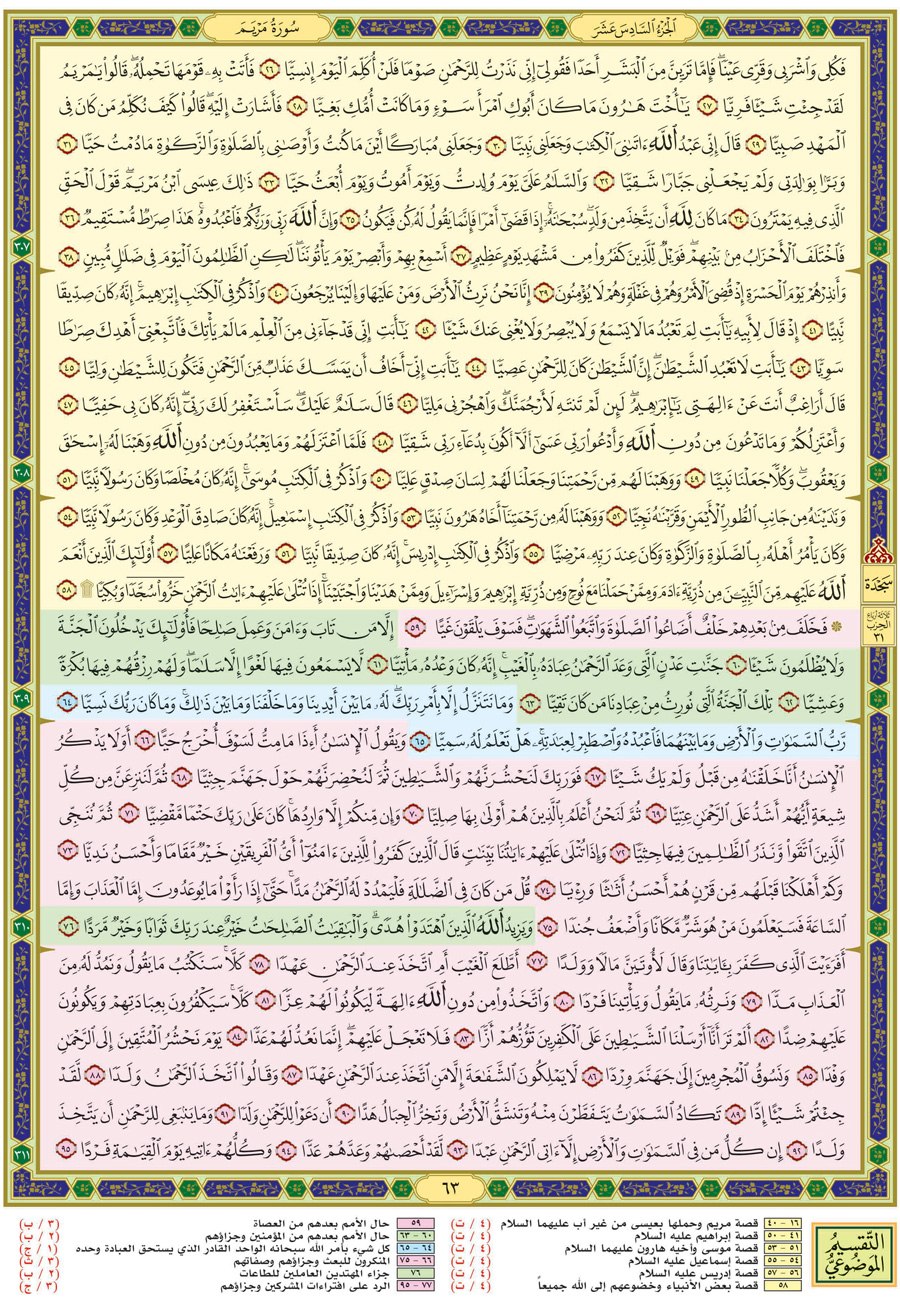 سُورَةُ مَرْيَمَ
الجُزْءُ السَّادِسَ عَشَرَ
فَكُلِى وَٱشْرَبِى وَقَرِّى عَيْنًاۖ فَإِمَّا تَرَيِنَّ مِنَ ٱلْبَشَرِ أَحَدًا فَقُولِىٓ إِنِّى نَذَرْتُ لِلرَّحْمَٰنِ صَوْمًا فَلَنْ أُكَلِّمَ ٱلْيَوْمَ إِنسِيًّا ٢٦ فَأَتَتْ بِهِۦ قَوْمَهَا تَحْمِلُهُۥۖ قَالُوا۟ يَٰمَرْيَمُ
لَقَدْ جِئْتِ شَيْـًٔا فَرِيًّا ٢٧ يَٰٓأُخْتَ هَٰرُونَ مَا كَانَ أَبُوكِ ٱمْرَأَ سَوْءٍ وَمَا كَانَتْ أُمُّكِ بَغِيًّا ٢٨ فَأَشَارَتْ إِلَيْهِۖ قَالُوا۟ كَيْفَ نُكَلِّمُ مَن كَانَ فِى
ٱلْمَهْدِ صَبِيًّا ٢٩ قَالَ إِنِّى عَبْدُ ٱللَّهِ ءَاتَىٰنِىَ ٱلْكِتَٰبَ وَجَعَلَنِى نَبِيًّا ٣٠ وَجَعَلَنِى مُبَارَكًا أَيْنَ مَا كُنتُ وَأَوْصَٰنِى بِٱلصَّلَوٰةِ وَٱلزَّكَوٰةِ مَا دُمْتُ حَيًّا ٣١
وَبَرًّۢا بِوَٰلِدَتِى وَلَمْ يَجْعَلْنِى جَبَّارًا شَقِيًّا ٣٢ وَٱلسَّلَٰمُ عَلَىَّ يَوْمَ وُلِدتُّ وَيَوْمَ أَمُوتُ وَيَوْمَ أُبْعَثُ حَيًّا ٣٣ ذَٰلِكَ عِيسَى ٱبْنُ مَرْيَمَۚ قَوْلَ ٱلْحَقِّ
ٱلَّذِى فِيهِ يَمْتَرُونَ ٣٤ مَا كَانَ لِلَّهِ أَن يَتَّخِذَ مِن وَلَدٍۖ سُبْحَٰنَهُۥٓۚ إِذَا قَضَىٰٓ أَمْرًا فَإِنَّمَا يَقُولُ لَهُۥ كُن فَيَكُونُ ٣٥ وَإِنَّ ٱللَّهَ رَبِّى وَرَبُّكُمْ فَٱعْبُدُوهُۚ هَٰذَا صِرَٰطٌ مُّسْتَقِيمٌ ٣٦
فَٱخْتَلَفَ ٱلْأَحْزَابُ مِنۢ بَيْنِهِمْۖ فَوَيْلٌ لِّلَّذِينَ كَفَرُوا۟ مِن مَّشْهَدِ يَوْمٍ عَظِيمٍ ٣٧ أَسْمِعْ بِهِمْ وَأَبْصِرْ يَوْمَ يَأْتُونَنَاۖ لَٰكِنِ ٱلظَّٰلِمُونَ ٱلْيَوْمَ فِى ضَلَٰلٍ مُّبِينٍ ٣٨
وَأَنذِرْهُمْ يَوْمَ ٱلْحَسْرَةِ إِذْ قُضِىَ ٱلْأَمْرُ وَهُمْ فِى غَفْلَةٍ وَهُمْ لَا يُؤْمِنُونَ ٣٩ إِنَّا نَحْنُ نَرِثُ ٱلْأَرْضَ وَمَنْ عَلَيْهَا وَإِلَيْنَا يُرْجَعُونَ ٤٠ وَٱذْكُرْ فِى ٱلْكِتَٰبِ إِبْرَٰهِيمَۚ إِنَّهُۥ كَانَ صِدِّيقًا
نَّبِيًّا ٤١ إِذْ قَالَ لِأَبِيهِ يَٰٓأَبَتِ لِمَ تَعْبُدُ مَا لَا يَسْمَعُ وَلَا يُبْصِرُ وَلَا يُغْنِى عَنكَ شَيْـًٔا ٤٢ يَٰٓأَبَتِ إِنِّى قَدْ جَآءَنِى مِنَ ٱلْعِلْمِ مَا لَمْ يَأْتِكَ فَٱتَّبِعْنِىٓ أَهْدِكَ صِرَٰطًا
سَوِيًّا ٤٣ يَٰٓأَبَتِ لَا تَعْبُدِ ٱلشَّيْطَٰنَۖ إِنَّ ٱلشَّيْطَٰنَ كَانَ لِلرَّحْمَٰنِ عَصِيًّا ٤٤ يَٰٓأَبَتِ إِنِّىٓ أَخَافُ أَن يَمَسَّكَ عَذَابٌ مِّنَ ٱلرَّحْمَٰنِ فَتَكُونَ لِلشَّيْطَٰنِ وَلِيًّا ٤٥
قَالَ أَرَاغِبٌ أَنتَ عَنْ ءَالِهَتِى يَٰٓإِبْرَٰهِيمُۖ لَئِن لَّمْ تَنتَهِ لَأَرْجُمَنَّكَۖ وَٱهْجُرْنِى مَلِيًّا ٤٦ قَالَ سَلَٰمٌ عَلَيْكَۖ سَأَسْتَغْفِرُ لَكَ رَبِّىٓۖ إِنَّهُۥ كَانَ بِى حَفِيًّا ٤٧
وَأَعْتَزِلُكُمْ وَمَا تَدْعُونَ مِن دُونِ ٱللَّهِ وَأَدْعُوا۟ رَبِّى عَسَىٰٓ أَلَّآ أَكُونَ بِدُعَآءِ رَبِّى شَقِيًّا ٤٨ فَلَمَّا ٱعْتَزَلَهُمْ وَمَا يَعْبُدُونَ مِن دُونِ ٱللَّهِ وَهَبْنَا لَهُۥٓ إِسْحَٰقَ
وَيَعْقُوبَۖ وَكُلًّا جَعَلْنَا نَبِيًّا ٤٩ وَوَهَبْنَا لَهُم مِّن رَّحْمَتِنَا وَجَعَلْنَا لَهُمْ لِسَانَ صِدْقٍ عَلِيًّا ٥٠ وَٱذْكُرْ فِى ٱلْكِتَٰبِ مُوسَىٰٓۚ إِنَّهُۥ كَانَ مُخْلَصًا وَكَانَ رَسُولًا نَّبِيًّا ٥١
وَنَٰدَيْنَٰهُ مِن جَانِبِ ٱلطُّورِ ٱلْأَيْمَنِ وَقَرَّبْنَٰهُ نَجِيًّا ٥٢ وَوَهَبْنَا لَهُۥ مِن رَّحْمَتِنَآ أَخَاهُ هَٰرُونَ نَبِيًّا ٥٣ وَٱذْكُرْ فِى ٱلْكِتَٰبِ إِسْمَٰعِيلَۚ إِنَّهُۥ كَانَ صَادِقَ ٱلْوَعْدِ وَكَانَ رَسُولًا نَّبِيًّا ٥٤
وَكَانَ يَأْمُرُ أَهْلَهُۥ بِٱلصَّلَوٰةِ وَٱلزَّكَوٰةِ وَكَانَ عِندَ رَبِّهِۦ مَرْضِيًّا ٥٥ وَٱذْكُرْ فِى ٱلْكِتَٰبِ إِدْرِيسَۚ إِنَّهُۥ كَانَ صِدِّيقًا نَّبِيًّا ٥٦ وَرَفَعْنَٰهُ مَكَانًا عَلِيًّا ٥٧ أُو۟لَٰٓئِكَ ٱلَّذِينَ أَنْعَمَ
ٱللَّهُ عَلَيْهِم مِّنَ ٱلنَّبِيِّـۧنَ مِن ذُرِّيَّةِ ءَادَمَ وَمِمَّنْ حَمَلْنَا مَعَ نُوحٍ وَمِن ذُرِّيَّةِ إِبْرَٰهِيمَ وَإِسْرَٰٓءِيلَ وَمِمَّنْ هَدَيْنَا وَٱجْتَبَيْنَآۚ إِذَا تُتْلَىٰ عَلَيْهِمْ ءَايَٰتُ ٱلرَّحْمَٰنِ خَرُّوا۟ سُجَّدًا وَبُكِيًّا ۩ ٥٨
۞ فَخَلَفَ مِنۢ بَعْدِهِمْ خَلْفٌ أَضَاعُوا۟ ٱلصَّلَوٰةَ وَٱتَّبَعُوا۟ ٱلشَّهَوَٰتِۖ فَسَوْفَ يَلْقَوْنَ غَيًّا ٥٩ إِلَّا مَن تَابَ وَءَامَنَ وَعَمِلَ صَٰلِحًا فَأُو۟لَٰٓئِكَ يَدْخُلُونَ ٱلْجَنَّةَ
وَلَا يُظْلَمُونَ شَيْـًٔا ٦٠ جَنَّٰتِ عَدْنٍ ٱلَّتِى وَعَدَ ٱلرَّحْمَٰنُ عِبَادَهُۥ بِٱلْغَيْبِۚ إِنَّهُۥ كَانَ وَعْدُهُۥ مَأْتِيًّا ٦١ لَّا يَسْمَعُونَ فِيهَا لَغْوًا إِلَّا سَلَٰمًاۖ وَلَهُمْ رِزْقُهُمْ فِيهَا بُكْرَةً
وَعَشِيًّا ٦٢ تِلْكَ ٱلْجَنَّةُ ٱلَّتِى نُورِثُ مِنْ عِبَادِنَا مَن كَانَ تَقِيًّا ٦٣ وَمَا نَتَنَزَّلُ إِلَّا بِأَمْرِ رَبِّكَۖ لَهُۥ مَا بَيْنَ أَيْدِينَا وَمَا خَلْفَنَا وَمَا بَيْنَ ذَٰلِكَۚ وَمَا كَانَ رَبُّكَ نَسِيًّا ٦٤
رَّبُّ ٱلسَّمَٰوَٰتِ وَٱلْأَرْضِ وَمَا بَيْنَهُمَا فَٱعْبُدْهُ وَٱصْطَبِرْ لِعِبَٰدَتِهِۦۚ هَلْ تَعْلَمُ لَهُۥ سَمِيًّا ٦٥ وَيَقُولُ ٱلْإِنسَٰنُ أَءِذَا مَا مِتُّ لَسَوْفَ أُخْرَجُ حَيًّا ٦٦ أَوَلَا يَذْكُرُ
ٱلْإِنسَٰنُ أَنَّا خَلَقْنَٰهُ مِن قَبْلُ وَلَمْ يَكُ شَيْـًٔا ٦٧ فَوَرَبِّكَ لَنَحْشُرَنَّهُمْ وَٱلشَّيَٰطِينَ ثُمَّ لَنُحْضِرَنَّهُمْ حَوْلَ جَهَنَّمَ جِثِيًّا ٦٨ ثُمَّ لَنَنزِعَنَّ مِن كُلِّ
شِيعَةٍ أَيُّهُمْ أَشَدُّ عَلَى ٱلرَّحْمَٰنِ عِتِيًّا ٦٩ ثُمَّ لَنَحْنُ أَعْلَمُ بِٱلَّذِينَ هُمْ أَوْلَىٰ بِهَا صِلِيًّا ٧٠ وَإِن مِّنكُمْ إِلَّا وَارِدُهَاۚ كَانَ عَلَىٰ رَبِّكَ حَتْمًا مَّقْضِيًّا ٧١ ثُمَّ نُنَجِّى
ٱلَّذِينَ ٱتَّقَوا۟ وَّنَذَرُ ٱلظَّٰلِمِينَ فِيهَا جِثِيًّا ٧٢ وَإِذَا تُتْلَىٰ عَلَيْهِمْ ءَايَٰتُنَا بَيِّنَٰتٍ قَالَ ٱلَّذِينَ كَفَرُوا۟ لِلَّذِينَ ءَامَنُوٓا۟ أَىُّ ٱلْفَرِيقَيْنِ خَيْرٌ مَّقَامًا وَأَحْسَنُ نَدِيًّا ٧٣
وَكَمْ أَهْلَكْنَا قَبْلَهُم مِّن قَرْنٍ هُمْ أَحْسَنُ أَثَٰثًا وَرِءْيًا ٧٤ قُلْ مَن كَانَ فِى ٱلضَّلَٰلَةِ فَلْيَمْدُدْ لَهُ ٱلرَّحْمَٰنُ مَدًّاۚ حَتَّىٰٓ إِذَا رَأَوْا۟ مَا يُوعَدُونَ إِمَّا ٱلْعَذَابَ وَإِمَّا
ٱلسَّاعَةَ فَسَيَعْلَمُونَ مَنْ هُوَ شَرٌّ مَّكَانًا وَأَضْعَفُ جُندًا ٧٥ وَيَزِيدُ ٱللَّهُ ٱلَّذِينَ ٱهْتَدَوْا۟ هُدًىۗ وَٱلْبَٰقِيَٰتُ ٱلصَّٰلِحَٰتُ خَيْرٌ عِندَ رَبِّكَ ثَوَابًا وَخَيْرٌ مَّرَدًّا ٧٦
أَفَرَءَيْتَ ٱلَّذِى كَفَرَ بِـَٔايَٰتِنَا وَقَالَ لَأُوتَيَنَّ مَالًا وَوَلَدًا ٧٧ أَطَّلَعَ ٱلْغَيْبَ أَمِ ٱتَّخَذَ عِندَ ٱلرَّحْمَٰنِ عَهْدًا ٧٨ كَلَّاۚ سَنَكْتُبُ مَا يَقُولُ وَنَمُدُّ لَهُۥ مِنَ
ٱلْعَذَابِ مَدًّا ٧٩ وَنَرِثُهُۥ مَا يَقُولُ وَيَأْتِينَا فَرْدًا ٨٠ وَٱتَّخَذُوا۟ مِن دُونِ ٱللَّهِ ءَالِهَةً لِّيَكُونُوا۟ لَهُمْ عِزًّا ٨١ كَلَّاۚ سَيَكْفُرُونَ بِعِبَادَتِهِمْ وَيَكُونُونَ
عَلَيْهِمْ ضِدًّا ٨٢ أَلَمْ تَرَ أَنَّآ أَرْسَلْنَا ٱلشَّيَٰطِينَ عَلَى ٱلْكَٰفِرِينَ تَؤُزُّهُمْ أَزًّا ٨٣ فَلَا تَعْجَلْ عَلَيْهِمْۖ إِنَّمَا نَعُدُّ لَهُمْ عَدًّا ٨٤ يَوْمَ نَحْشُرُ ٱلْمُتَّقِينَ إِلَى ٱلرَّحْمَٰنِ
وَفْدًا ٨٥ وَنَسُوقُ ٱلْمُجْرِمِينَ إِلَىٰ جَهَنَّمَ وِرْدًا ٨٦ لَّا يَمْلِكُونَ ٱلشَّفَٰعَةَ إِلَّا مَنِ ٱتَّخَذَ عِندَ ٱلرَّحْمَٰنِ عَهْدًا ٨٧ وَقَالُوا۟ ٱتَّخَذَ ٱلرَّحْمَٰنُ وَلَدًا ٨٨ لَّقَدْ
جِئْتُمْ شَيْـًٔا إِدًّا ٨٩ تَكَادُ ٱلسَّمَٰوَٰتُ يَتَفَطَّرْنَ مِنْهُ وَتَنشَقُّ ٱلْأَرْضُ وَتَخِرُّ ٱلْجِبَالُ هَدًّا ٩٠ أَن دَعَوْا۟ لِلرَّحْمَٰنِ وَلَدًا ٩١ وَمَا يَنۢبَغِى لِلرَّحْمَٰنِ أَن يَتَّخِذَ
وَلَدًا ٩٢ إِن كُلُّ مَن فِى ٱلسَّمَٰوَٰتِ وَٱلْأَرْضِ إِلَّآ ءَاتِى ٱلرَّحْمَٰنِ عَبْدًا ٩٣ لَّقَدْ أَحْصَىٰهُمْ وَعَدَّهُمْ عَدًّا ٩٤ وَكُلُّهُمْ ءَاتِيهِ يَوْمَ ٱلْقِيَٰمَةِ فَرْدًا ٩٥
٣٠٧
٣٠٨
٣٠٩
٣١٠
٣١١
سَجْدَة
ثلاثة أرباع
الحزب
٣١
٦٣
التَّقْسِيمُ
المَوْضُوعِيُّ
١٦ - ٤٠ قصة مريم وحملها بعيسى من غير أب عليهما السلام (٤ / ت)
٤١ - ٥٠ قصة إبراهيم عليه السلام (٤ / ت)
٥١ - ٥٣ قصة موسى وأخيه هارون عليهما السلام (٤ / ت)
٥٤ - ٥٥ قصة إسماعيل عليه السلام (٤ / ت)
٥٦ - ٥٧ قصة إدريس عليه السلام (٤ / ت)
٥٨ قصة بعض الأنبياء وخضوعهم إلى الله جميعاً (٤ / ت)
٥٩ حال الأمم بعدهم من العصاة (٣ / ب)
٦٠ - ٦٣ حال الأمم بعدهم من المؤمنين وجزاؤهم (٢ / ب)
٦٤ - ٦٥ كل شيء بأمر الله سبحانه الواحد القادر الذي يستحق العبادة وحده (١ / ج)
٦٦ - ٧٥ المنكرون للبعث وجزاؤهم وصفاتهم (٣ / ت)
٧٦ جزاء المهتدين العاملين للطاعات (٢ / ب)
٧٧ - ٩٥ الرد على افتراءات المشركين وجزاؤهم (٣ / ج)